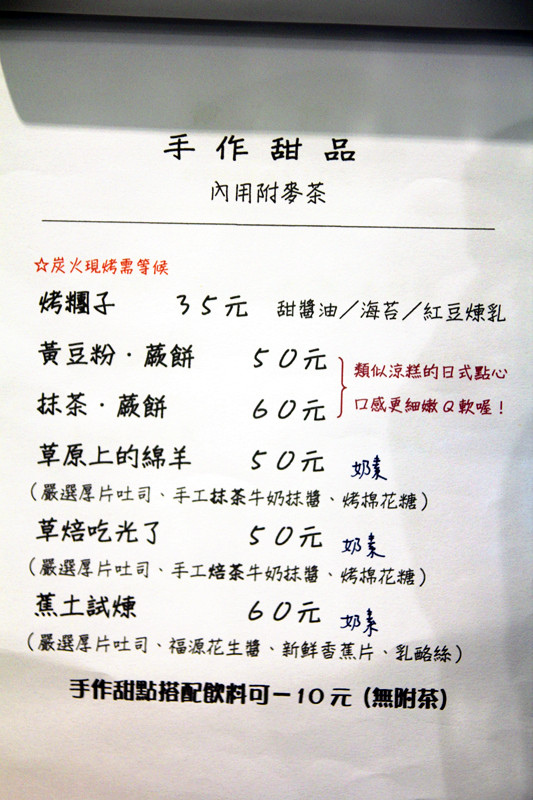 手作甜品
內用附麥茶
☆炭火現烤需等候
烤糰子 35元 甜醬油／海苔／紅豆煉乳
黃豆粉·蕨餅 50元
抹茶·蕨餅 60元
類似涼糕的日式點心
口感更細嫩Q軟喔！
草原上的綿羊 50元 奶素
(嚴選厚片吐司、手工抹茶牛奶抹醬、烤棉花糖)
草焙吃光了 50元 奶素
(嚴選厚片吐司、手工焙茶牛奶抹醬、烤棉花糖)
蕉土試煉 60元 奶素
(嚴選厚片吐司、福源花生醬、新鮮香蕉片、乳酪絲)
手作甜點搭配飲料可－10元 (無附茶)